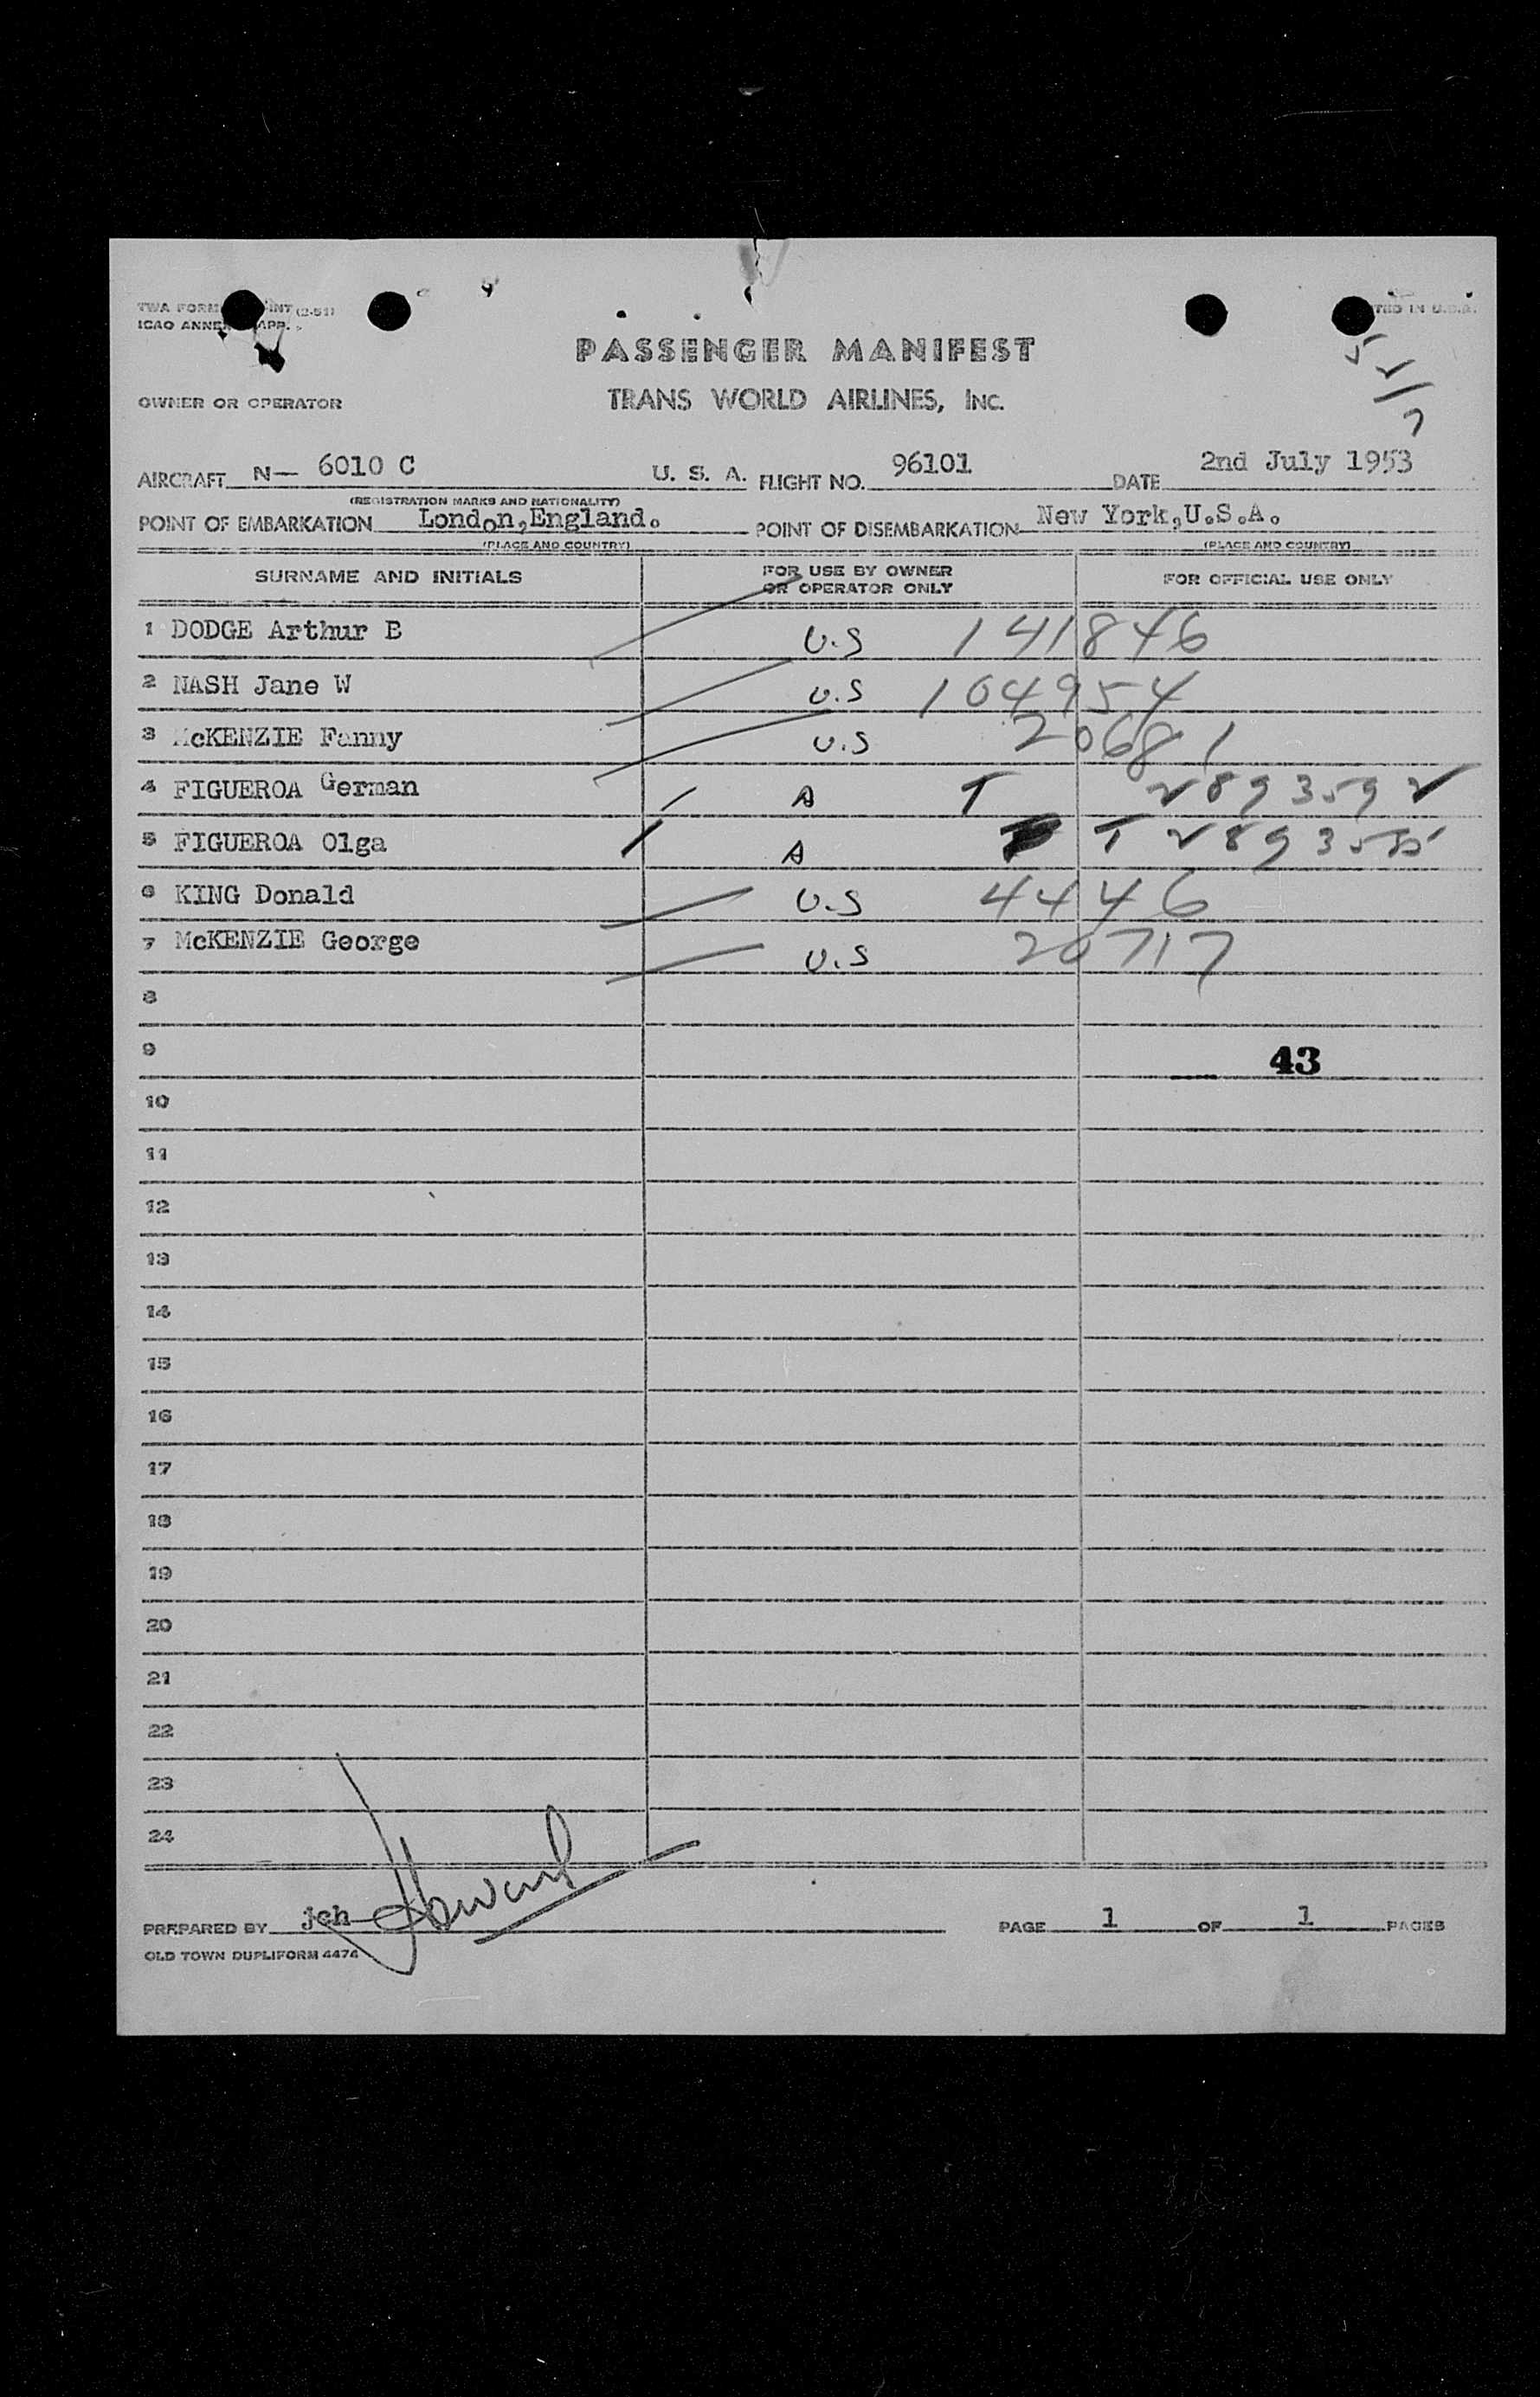 TWA FORM INT (2-51)
ICAO ANNEX APP.
TED IN U.S.A.
PASSENGER MANIFEST
OWNER OR OPERATOR TRANS WORLD AIRLINES, INC.
AIRCRAFT N— 6010 C U. S. A. FLIGHT NO. 96101 DATE 2nd July 1953
(REGISTRATION MARKS AND NATIONALITY)
POINT OF EMBARKATION London,England. POINT OF DISEMBARKATION New York,U.S.A.
(PLACE AND COUNTRY) (PLACE AND COUNTRY)
SURNAME AND INITIALS FOR USE BY OWNER OR OPERATOR ONLY FOR OFFICIAL USE ONLY
1 DODGE Arthur B U.S 141846
2 NASH Jane W U.S 104954
3 McKENZIE Fanny U.S 20681
4 FIGUEROA German A T V89359
5 FIGUEROA Olga A T
6 KING Donald U.S 4446
7 McKENZIE George U.S 20717
8
9 43
10
11
12
13
14
15
16
17
18
19
20
21
22
23
24
PREPARED BY jch PAGE 1 OF 1 PAGES
OLD TOWN DUPLIFORM 4474